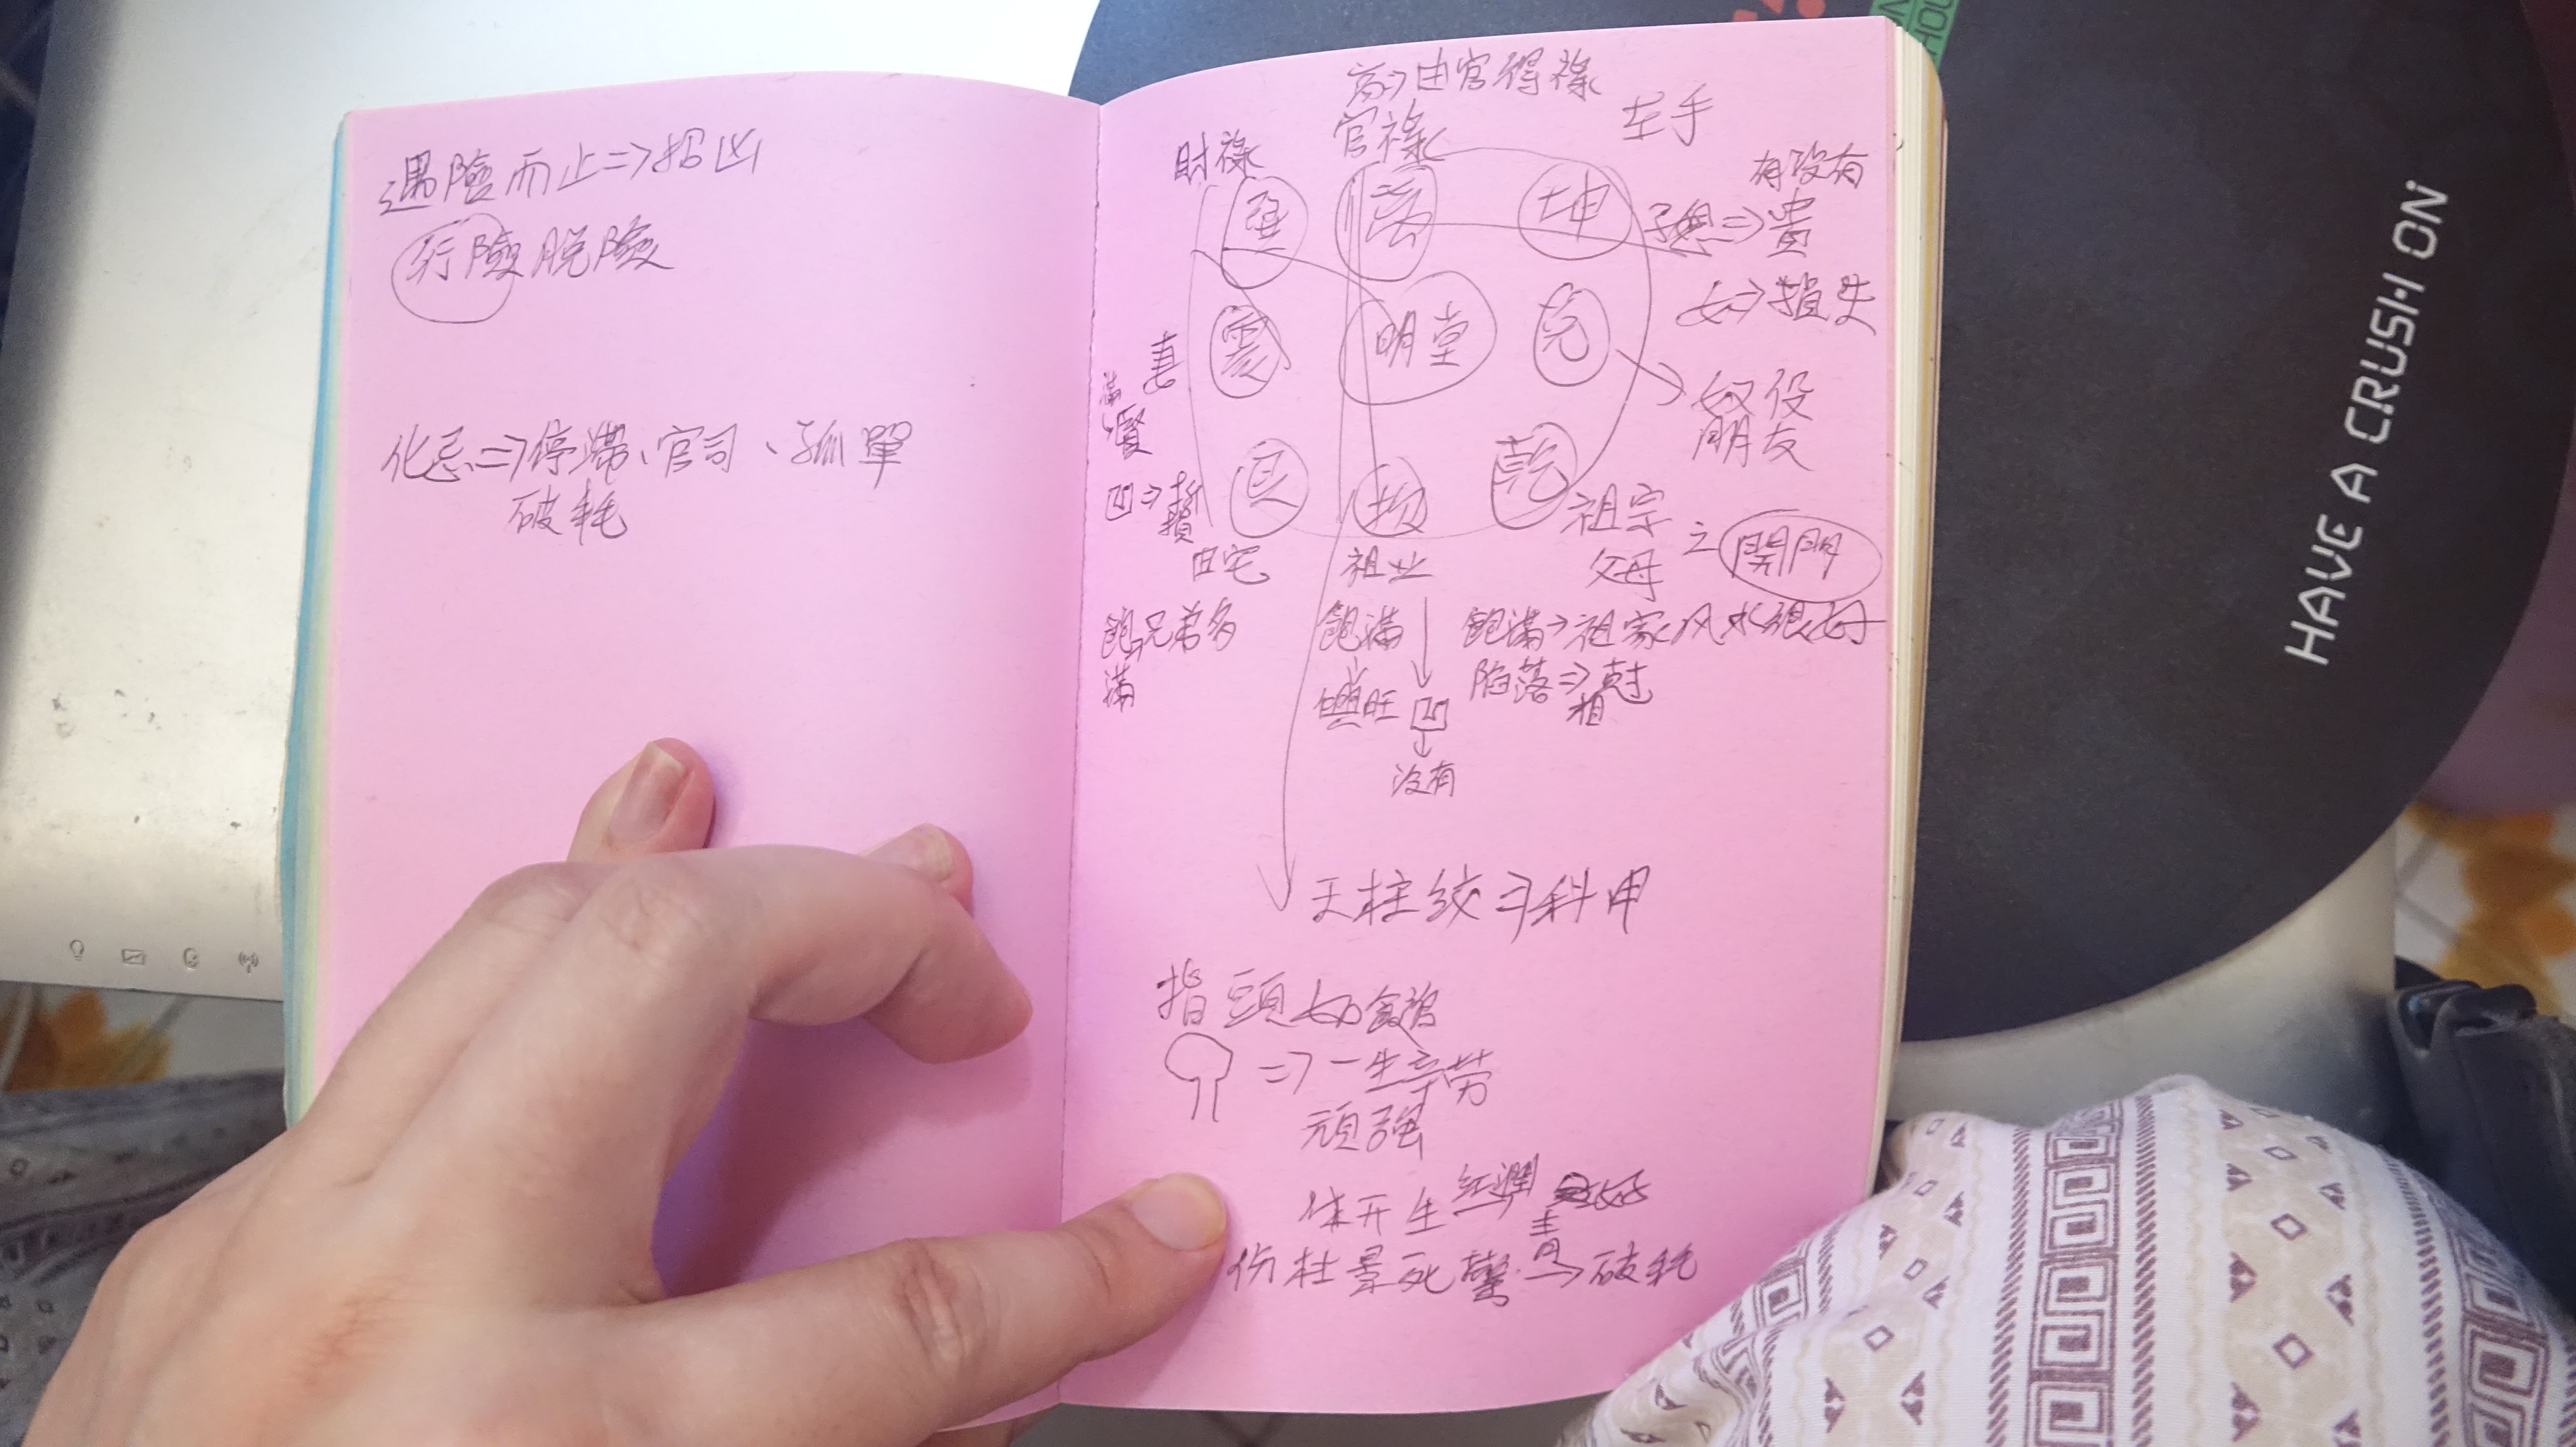 遇險而止⇒招凶
行險脫險
化忌⇒停滯、官司、孤單
破耗
高→由官得祿
官祿
左手
財祿
有沒有
巽
離
坤
子息⇒貴
女⇒損失
震
明堂
兌
妻
滿
賢
奴役
朋友
艮
坎
乾
凹⇒
田宅
祖业
祖宗
父母
之
開門
飽滿
兄弟多
飽滿
飽滿→祖家风水很好
旺
凹
陷落⇒
沒有
天柱纹⇒科甲
指頭如
⇒一生辛劳
頑强
休开生 红潤 好
伤杜景死驚 青→破耗
HAVE A CRUSH ON